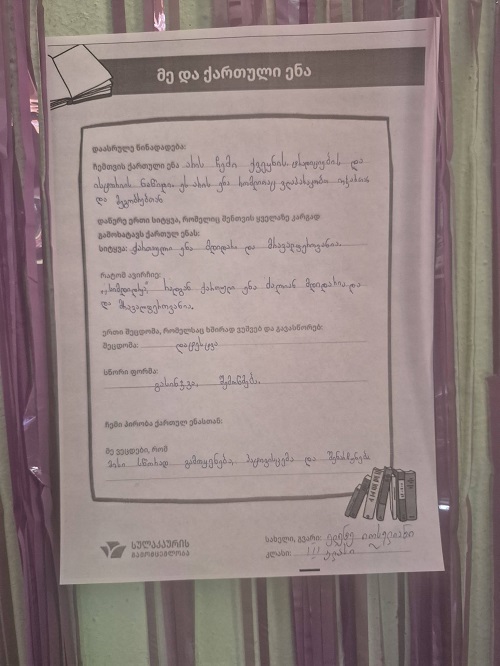 მე და ქართული ენა
დაასრულე წინადადება:
ჩემთვის ქართული ენა არის ჩემი ქვეყნის, ტრადიციების და
ისტორიის ნაწილი. ეს არის ენა რომლითაც ვლაპარაკობთ ოჯახთან
და მეგობრებთან
დაწერე ერთი სიტყვა, რომელიც შენთვის ყველაზე კარგად
გამოხატავს ქართულ ენას:
სიტყვა: ქართული ენა მდიდარი და მრავალფეროვანია.
რატომ აირჩიე:
„სიმდიდრე" რადგან ქართული ენა ძალიან მდიდარია და
და მრავალფეროვანია.
ერთი შეცდომა, რომელსაც ხშირად ვუშვებ და გავასწორებ:
შეცდომა: დაჩეკვა
სწორი ფორმა:
გასინჯვა, შემოწმება.
ჩემი პირობა ქართულ ენასთან:
მე ვეცდები, რომ
მისი სწორად გამოყენება, პატივისცემა და შენარჩუნება
სულაკაურის
გამომცემლობა
სახელი, გვარი:
კლასი: III კლასი